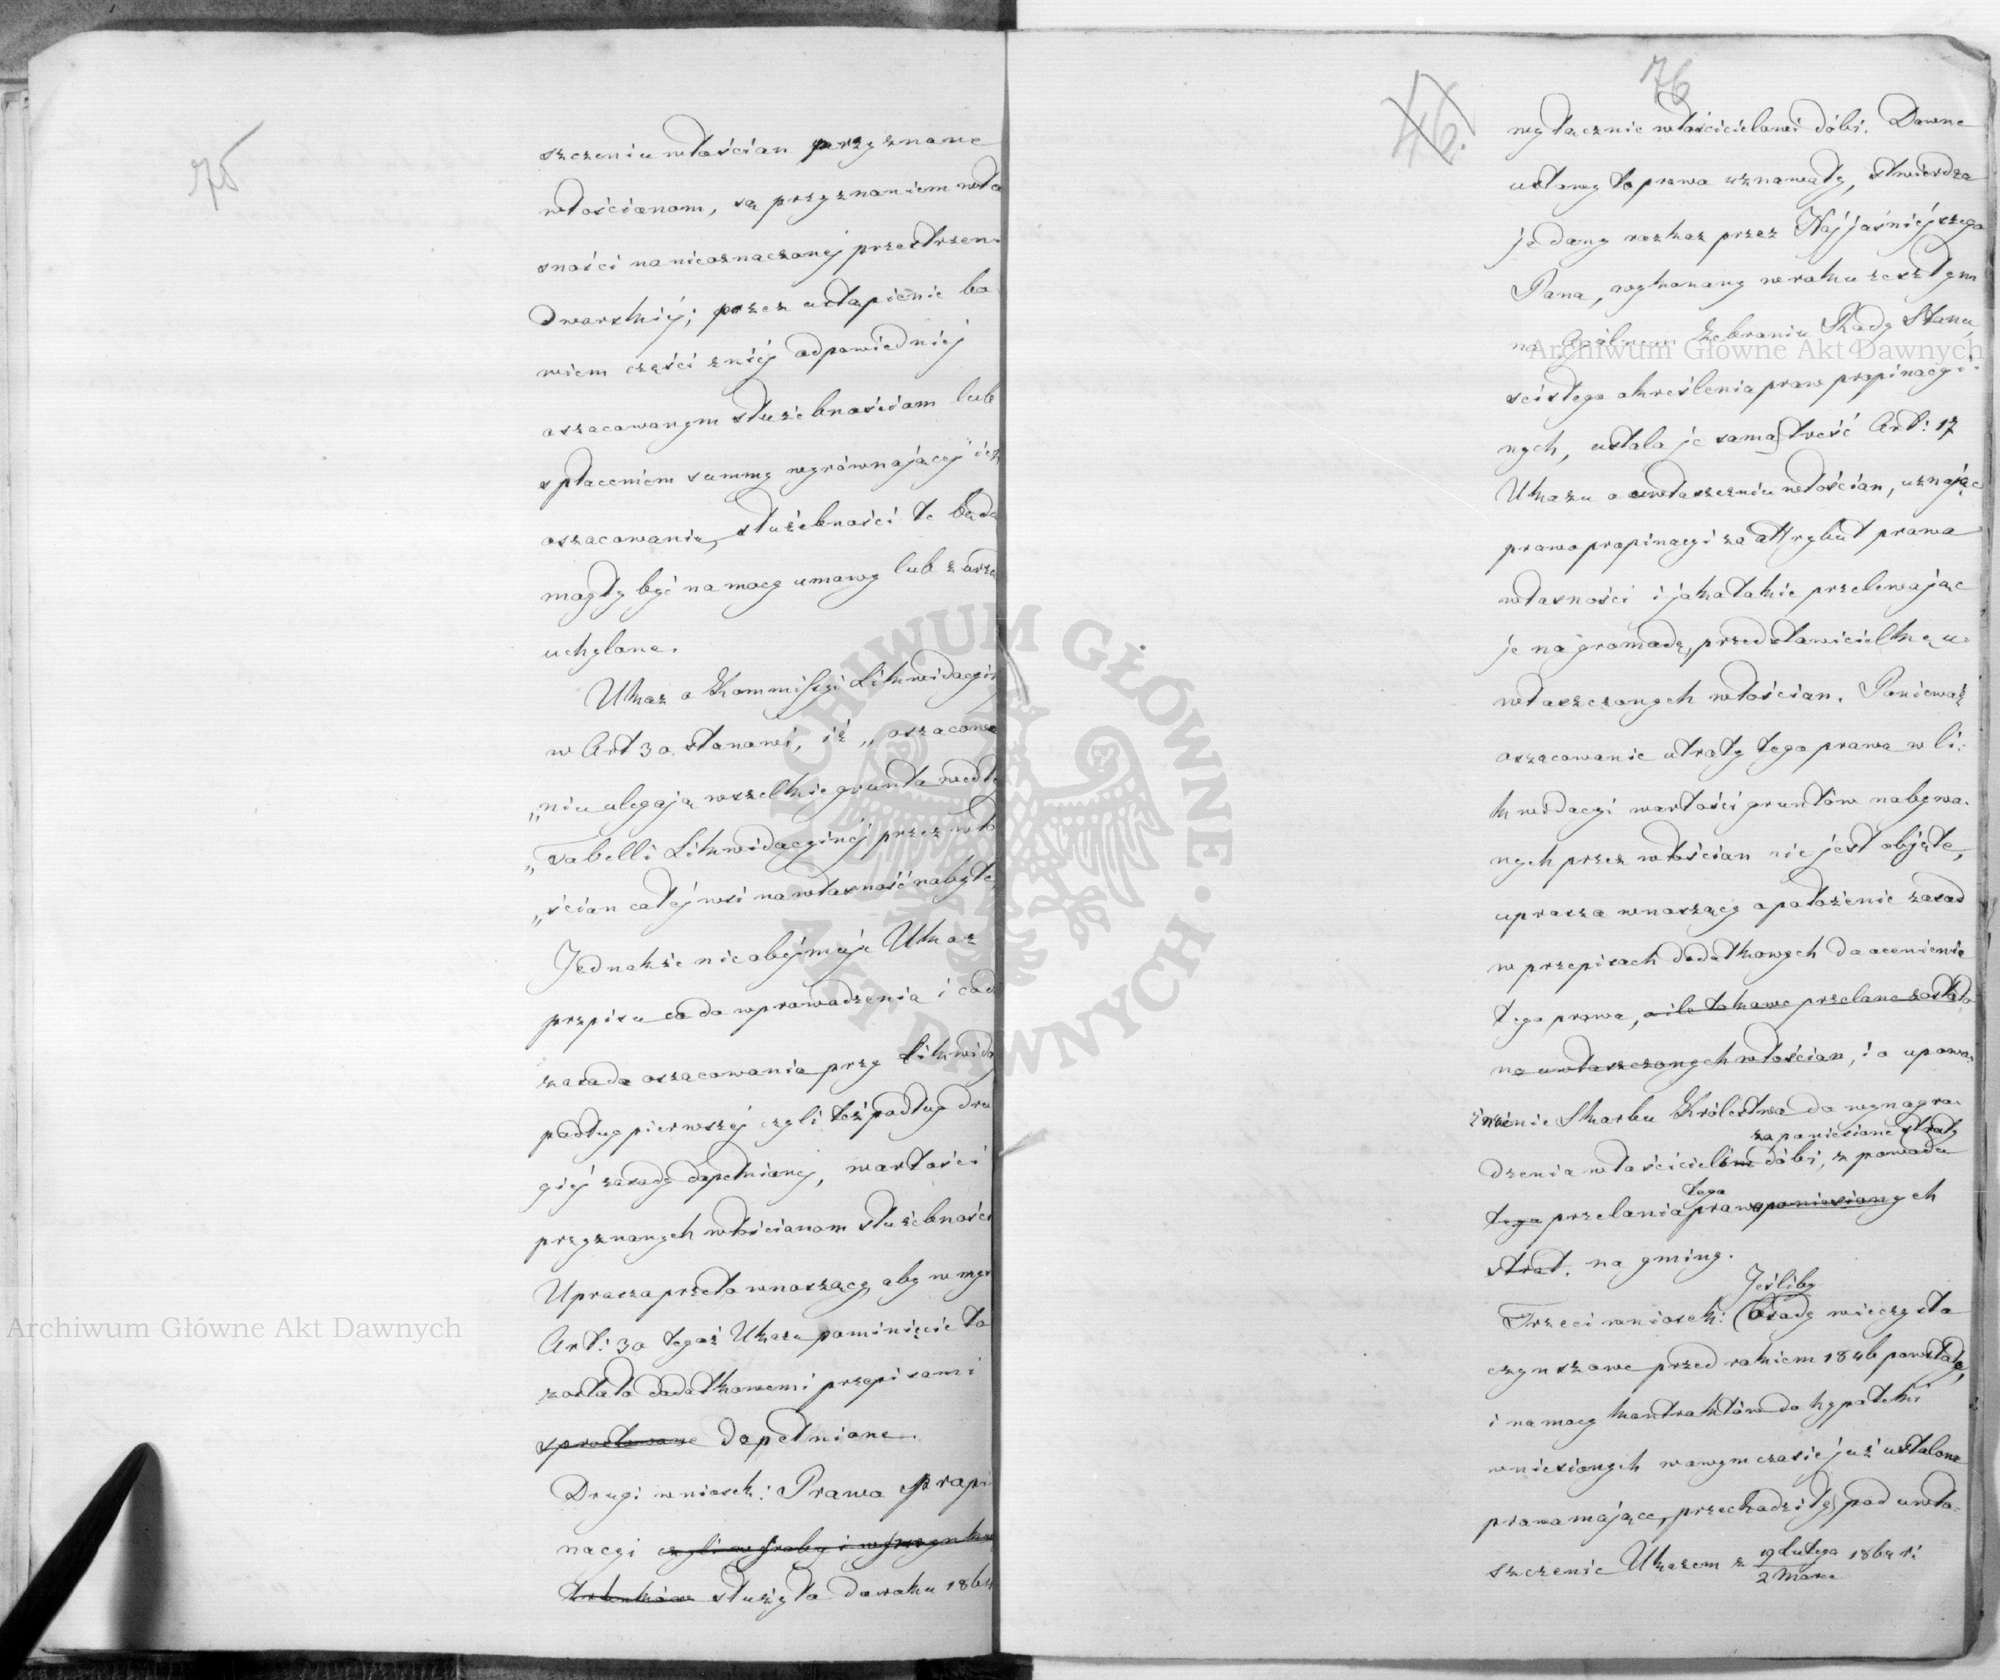 75
szczeniu włościan przyznane
włościanom, są przyznaniem wła
sności na nieoznaczonej przestrzeni
dworskiej; przez ustąpienie bo
wiem części z niej odpowiedniej
oszacowanym służebnościom lub
spłaceniem summy wyrównającej ich
oszacowaniu, służebności te będą
mogły być na mocy umowy lub z urzę
uchylone.
Ukaz o Kommissyi Likwidacyjn
w Art 30. stanowi, iż „oszacowa
„niu ulegają wszelkie grunta wedle
„Tabelli Likwidacyjnej przez wło
„ścian całej wsi na własność nabyte,
Jednakże nie obejmuje Ukaz
przepisu co do wprowadzenia i co do
zasada oszacowania przy Likwida
podług pierwszej czyli też podług dru
giej zasady dopełnianej, wartości
przyznanych włościanom służebności
Uprasza przeto wnoszący, aby w myśl
Art: 30 tegoż Ukazu pominięcie to
zostało dodatkowemi przepisami
sprostowane dopełnione.
Drugi wniosek: Prawo Propi
nacyi czyli wyroby i wyszynku
trunków służyło do roku 1864
46.
76
wyłącznie właścicielowi dóbr. Dawne
ustawy to prawo uznawały, stwierdza
je dany rozkaz przez Najjaśniejszego
Pana, wykonany w roku zeszłym
na Ogólnem Zebraniu Rady Stanu,
ścisłego określenia praw propinacyi
nych, ustala je sama treść Art: 17
Ukazu o uwłaszczeniu włościan, uznając
prawo propinacyi za attrybut prawa
własności i jako takie przelewając
je na gromadę, przedstawicielkę u-
właszczonych włościan. Ponieważ
oszacowanie utraty tego prawa w li-
kwidacyi wartości gruntów nabywa-
nych przez włościan nie jest objęte,
uprasza wnoszący o położenie zasad
w przepisach dodatkowych do ocenienia
tego prawa, o ile takowe przelane zostało
na uwłaszczonych włościan, i o upowa-
żnienie Skarbu Królestwa do wynagro-
za poniesione straty
dzenia właścicieli dóbr, z powodu
tego
tego przelania prawa poniesionych
strat. na gminy.
Jeśliby
Trzeci wniosek: Osady wieczysto
czynszowe przed rokiem 1846 powstałe,
i na mocy kontraktów do hypoteki
wniesionych w owym czasie już ustalone
prawa mające, przechodziły pod uwła-
szczenie Ukazem z 19 Lutego 1864 r:
2 Marca
Archiwum Główne Akt Dawnych
Archiwum Główne Akt Dawnych
ARCHIWUM GŁÓWNE · AKT DAWNYCH ·